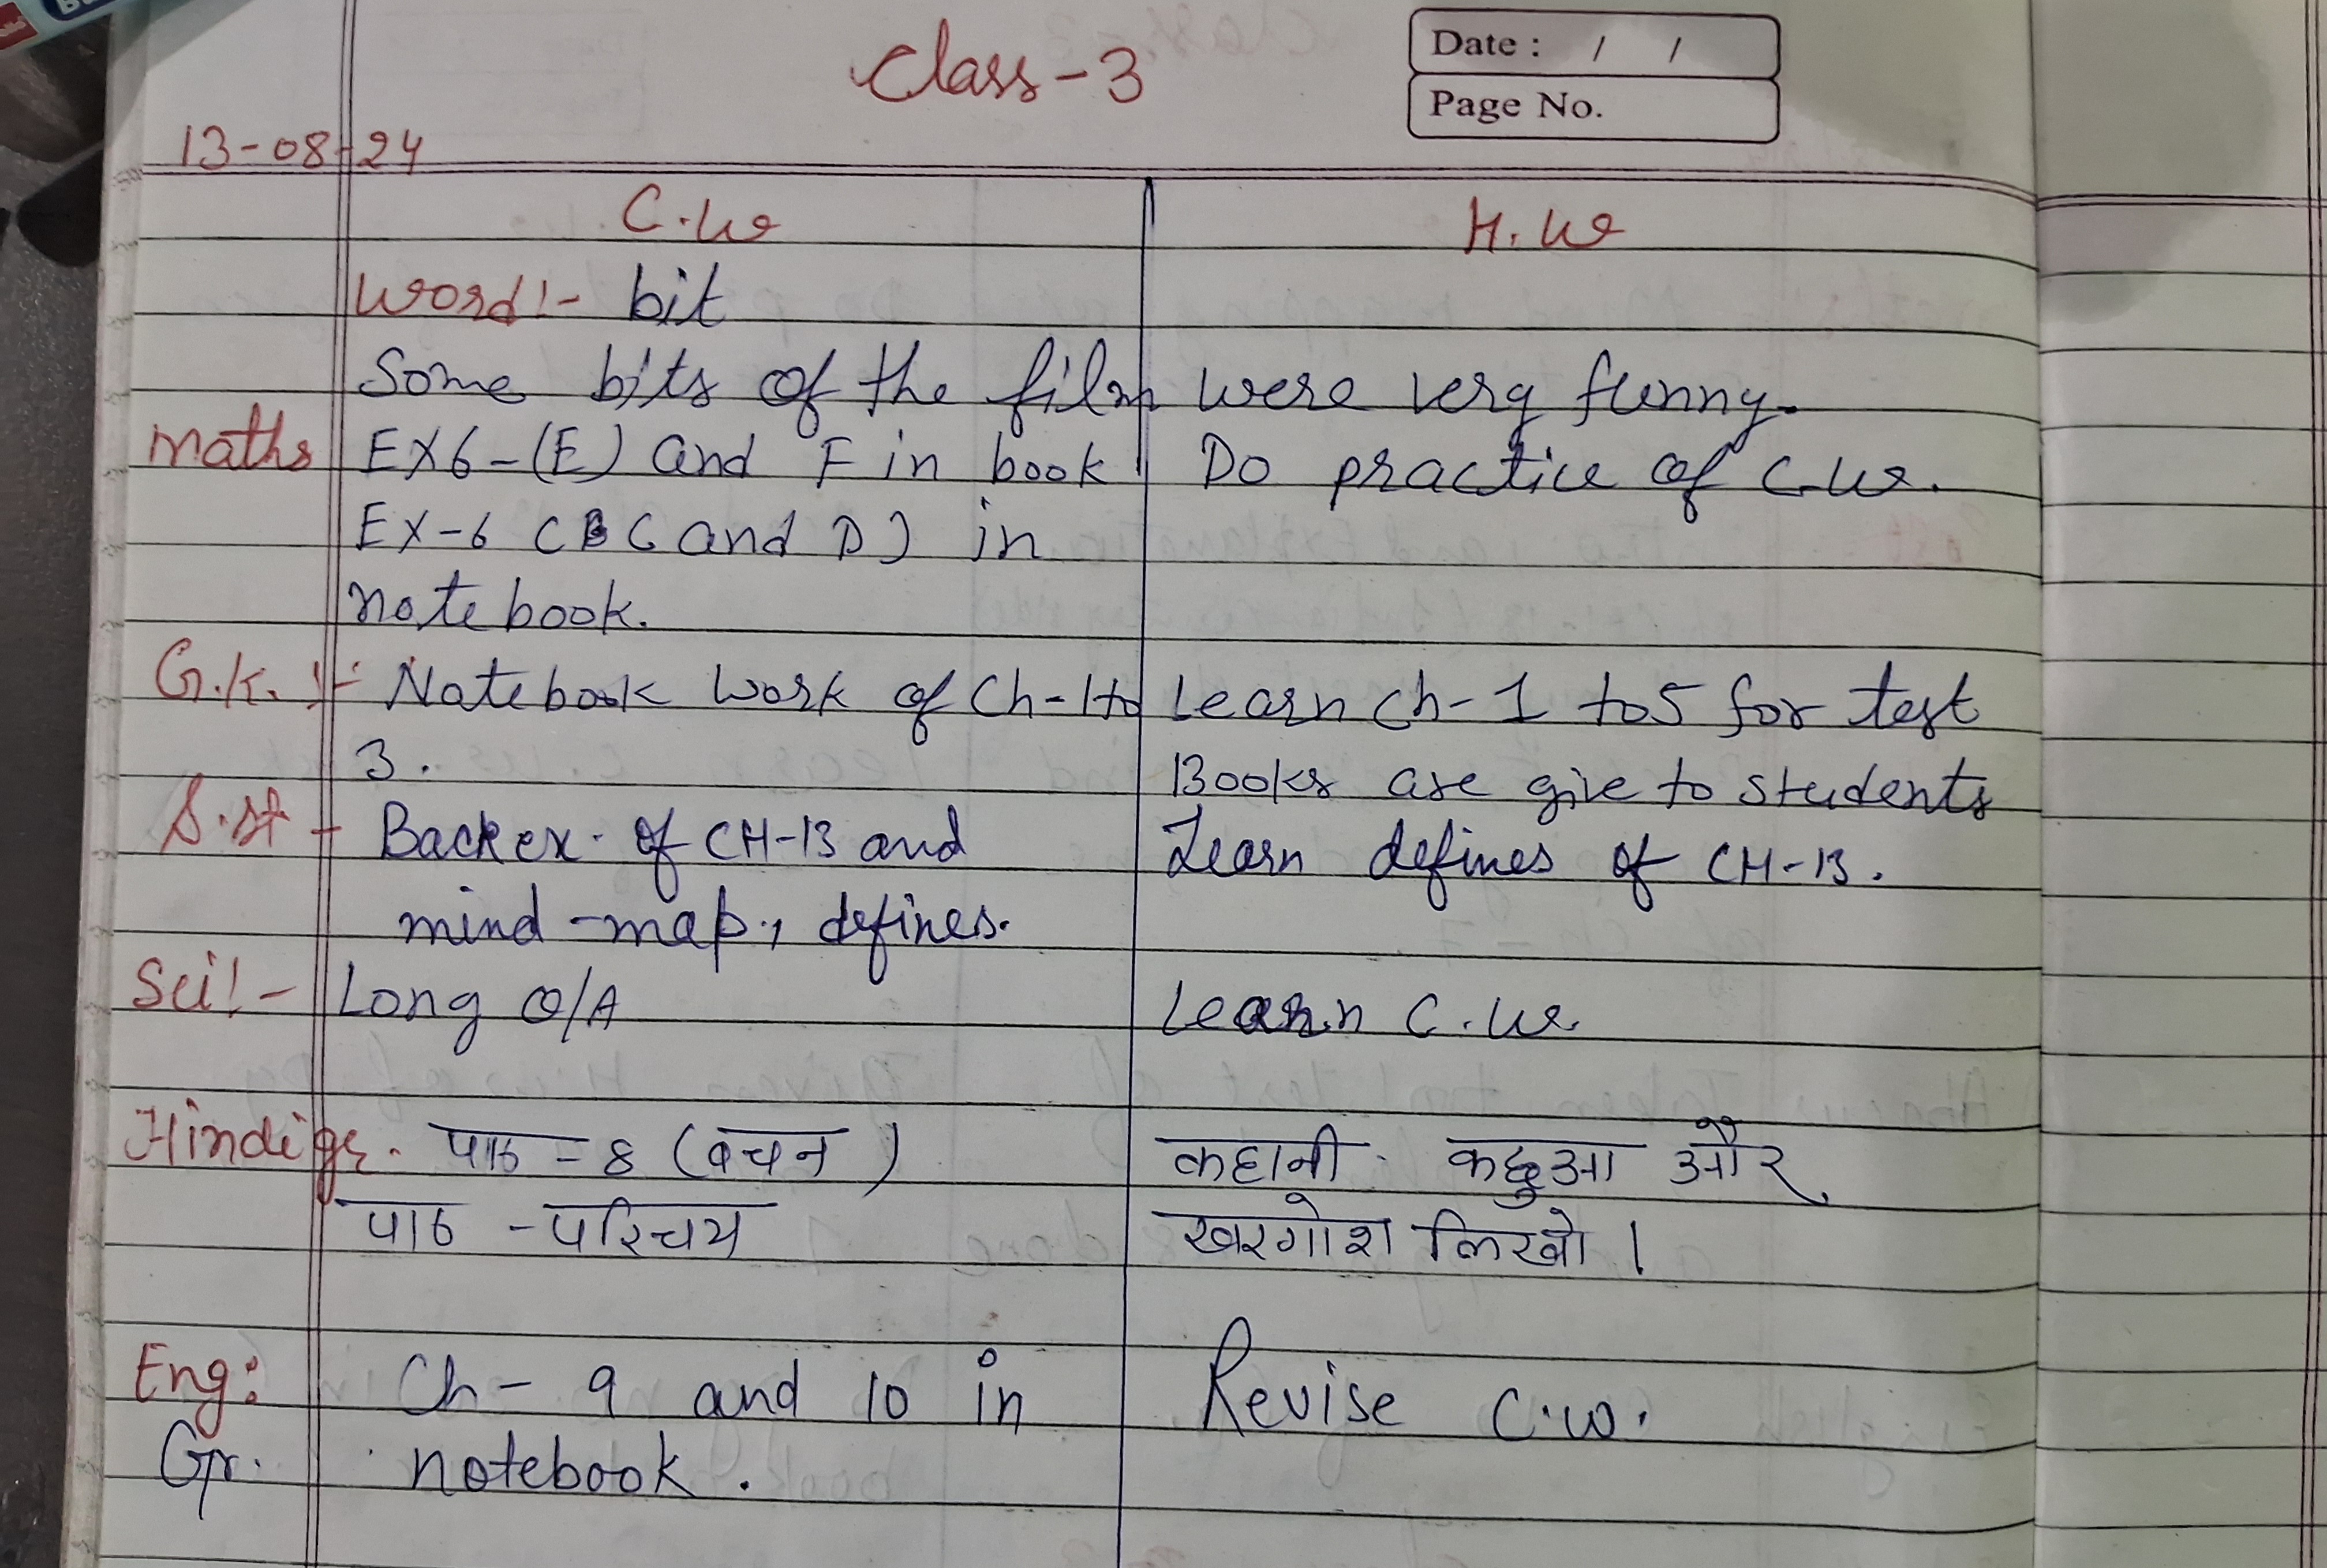 Class-3
Date : / /
Page No.
13-08-24
C.W H.W
Word:- bit
Some bits of the film were very funny.
Maths EX6-(E) and F in book Do practice of C.W.
EX-6 (B C and D) in
notebook.
G.K. :- Notebook work of Ch-1 to Learn ch-1 to 5 for test
3. Books are give to students
S.st - Back ex. of CH-13 and Learn defines of CH-13.
mind-map, defines.
Sci:- Long Q/A Learn C.W.
Hindi gr. पाठ - 8 (वचन) कहानी. कछुआ और
पाठ - परिचय खरगोश लिखो।
Eng: Ch- 9 and 10 in Revise C.W.
Gr. notebook.